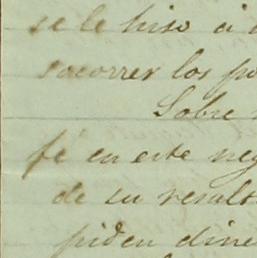 se le hiso á
socorrer los
Sobre
fé en este neg
de su result
piden dine